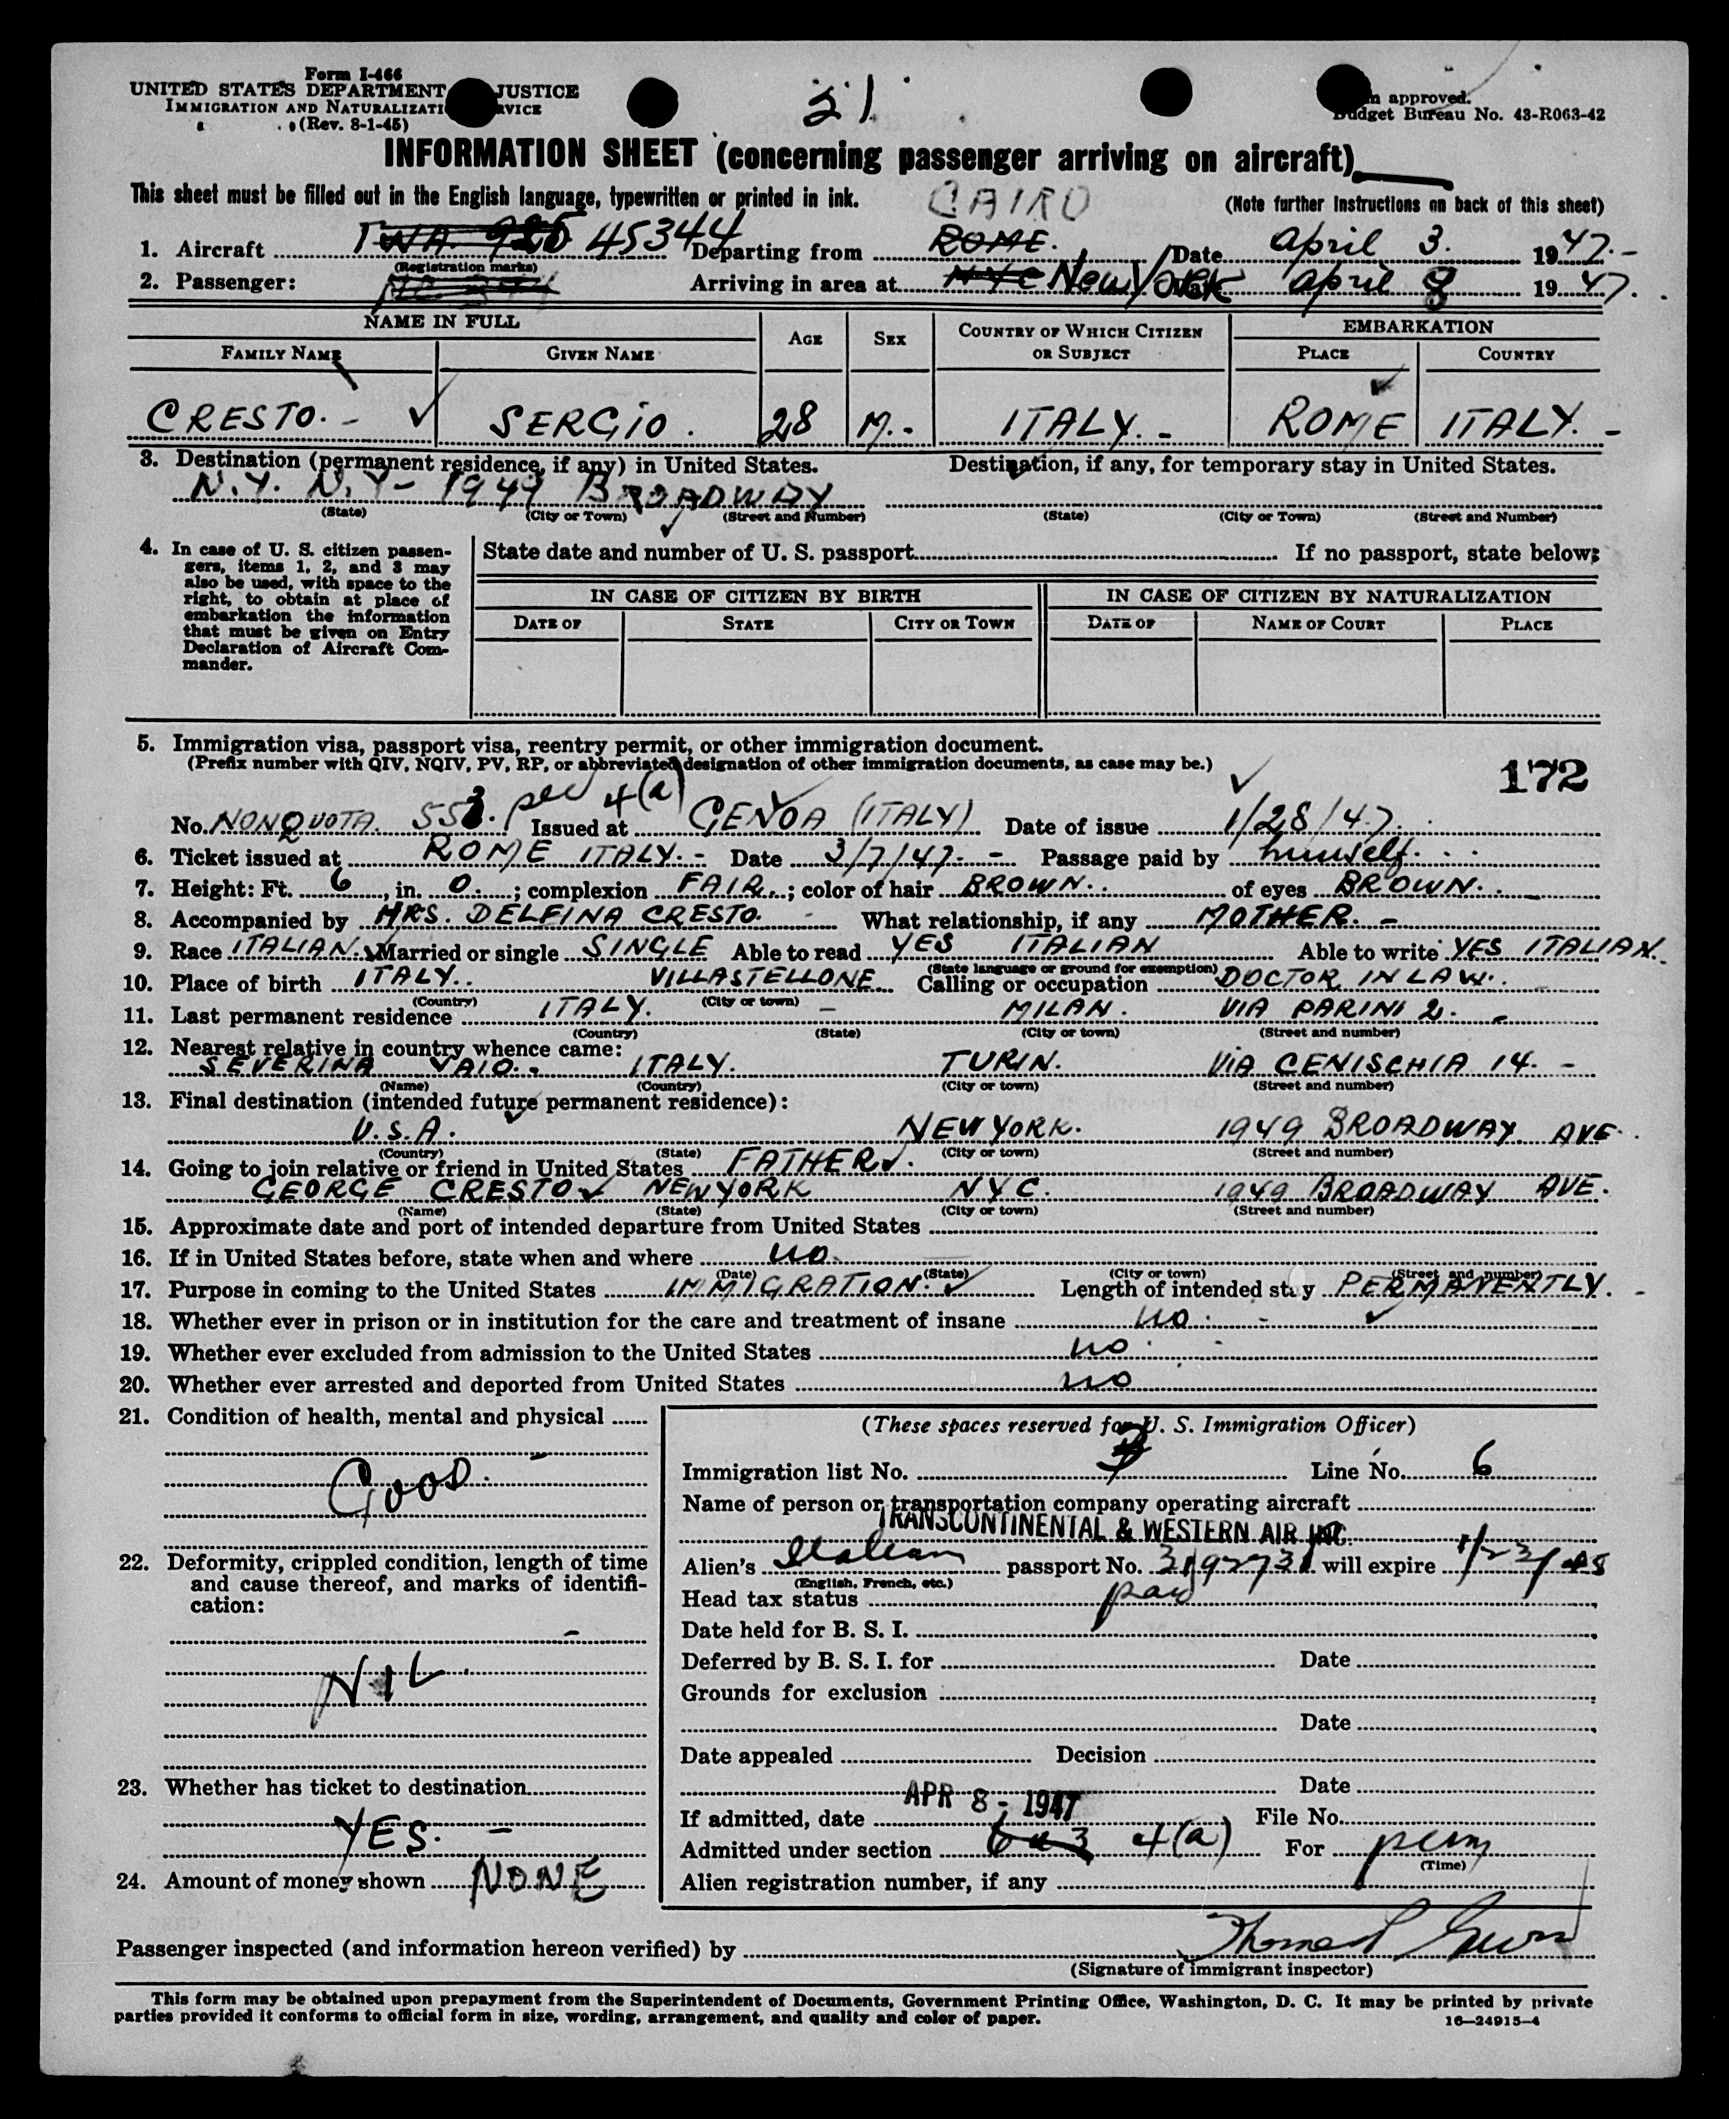 Form I-466
UNITED STATES DEPARTMENT JUSTICE
IMMIGRATION AND NATURALIZATI RVICE
(Rev. 8-1-45)
21
n approved.
Budget Bureau No. 43-R063-42
INFORMATION SHEET (concerning passenger arriving on aircraft)
This sheet must be filled out in the English language, typewritten or printed in ink.
CAIRO
(Note further instructions on back of this sheet)
1. Aircraft TWA 45344 Departing from ROME. Date April 3. 1947.-
(Registration marks)
2. Passenger: Arriving in area at NYC New York April 8 1947.
NAME IN FULL AGE SEX COUNTRY OF WHICH CITIZEN OR SUBJECT EMBARKATION
FAMILY NAME GIVEN NAME PLACE COUNTRY
CRESTO.- SERGIO. 28 M.- ITALY.- ROME ITALY.-
3. Destination (permanent residence, if any) in United States. Destination, if any, for temporary stay in United States.
N.Y. N.Y- 1949 BROADWAY
(State) (City or Town) (Street and Number) (State) (City or Town) (Street and Number)
4. In case of U. S. citizen passengers, items 1, 2, and 3 may also be used, with space to the right, to obtain at place of embarkation the information that must be given on Entry Declaration of Aircraft Commander.
State date and number of U. S. passport If no passport, state below:
IN CASE OF CITIZEN BY BIRTH IN CASE OF CITIZEN BY NATURALIZATION
DATE OF STATE CITY OR TOWN DATE OF NAME OF COURT PLACE
5. Immigration visa, passport visa, reentry permit, or other immigration document.
(Prefix number with QIV, NQIV, PV, RP, or abbreviated designation of other immigration documents, as case may be.)
172
No. NONQUOTA. 553. sec 4(a) Issued at GENOA (ITALY) Date of issue 1/28/47.
6. Ticket issued at ROME ITALY.- Date 3/7/47.- Passage paid by himself.
7. Height: Ft. 6, in. 0.; complexion FAIR.; color of hair BROWN.. of eyes BROWN..
8. Accompanied by MRS. DELFINA CRESTO. What relationship, if any MOTHER.-
9. Race ITALIAN. Married or single SINGLE Able to read YES ITALIAN Able to write YES ITALIAN.
(State language or ground for exemption)
10. Place of birth ITALY.. VILLASTELLONE. Calling or occupation DOCTOR IN LAW.
(Country) (City or town)
11. Last permanent residence ITALY. - MILAN. VIA PARINI 2.-
(Country) (State) (City or town) (Street and number)
12. Nearest relative in country whence came:
SEVERINA VAIO.- ITALY. TURIN. VIA CENISCHIA 14.-
(Name) (Country) (City or town) (Street and number)
13. Final destination (intended future permanent residence):
U.S.A. NEW YORK. 1949 BROADWAY AVE.
(Country) (State) (City or town) (Street and number)
14. Going to join relative or friend in United States FATHER.
GEORGE CRESTO NEW YORK NYC. 1949 BROADWAY AVE.
(Name) (State) (City or town) (Street and number)
15. Approximate date and port of intended departure from United States
16. If in United States before, state when and where no.
(Date) (State) (City or town) (Street and number)
17. Purpose in coming to the United States IMMIGRATION. Length of intended stay PERMANENTLY.-
18. Whether ever in prison or in institution for the care and treatment of insane no.-
19. Whether ever excluded from admission to the United States no.-
20. Whether ever arrested and deported from United States no
21. Condition of health, mental and physical
GOOD.
22. Deformity, crippled condition, length of time and cause thereof, and marks of identification:
NIL.
23. Whether has ticket to destination
YES.-
24. Amount of money shown NONE
(These spaces reserved for U. S. Immigration Officer)
Immigration list No. Line No. 6
Name of person or transportation company operating aircraft
TRANSCONTINENTAL & WESTERN AIR INC.
Alien's Italian passport No. 3192731 will expire 1/23/48
(English, French, etc.)
Head tax status paid
Date held for B. S. I.
Deferred by B. S. I. for Date
Grounds for exclusion
Date
Date appealed Decision
Date
If admitted, date APR 8 - 1947 File No.
Admitted under section 6 a 3 4(a) For perm
(Time)
Alien registration number, if any
Passenger inspected (and information hereon verified) by Thomas P
(Signature of immigrant inspector)
This form may be obtained upon prepayment from the Superintendent of Documents, Government Printing Office, Washington, D. C. It may be printed by private
parties provided it conforms to official form in size, wording, arrangement, and quality and color of paper.
16—24915-4